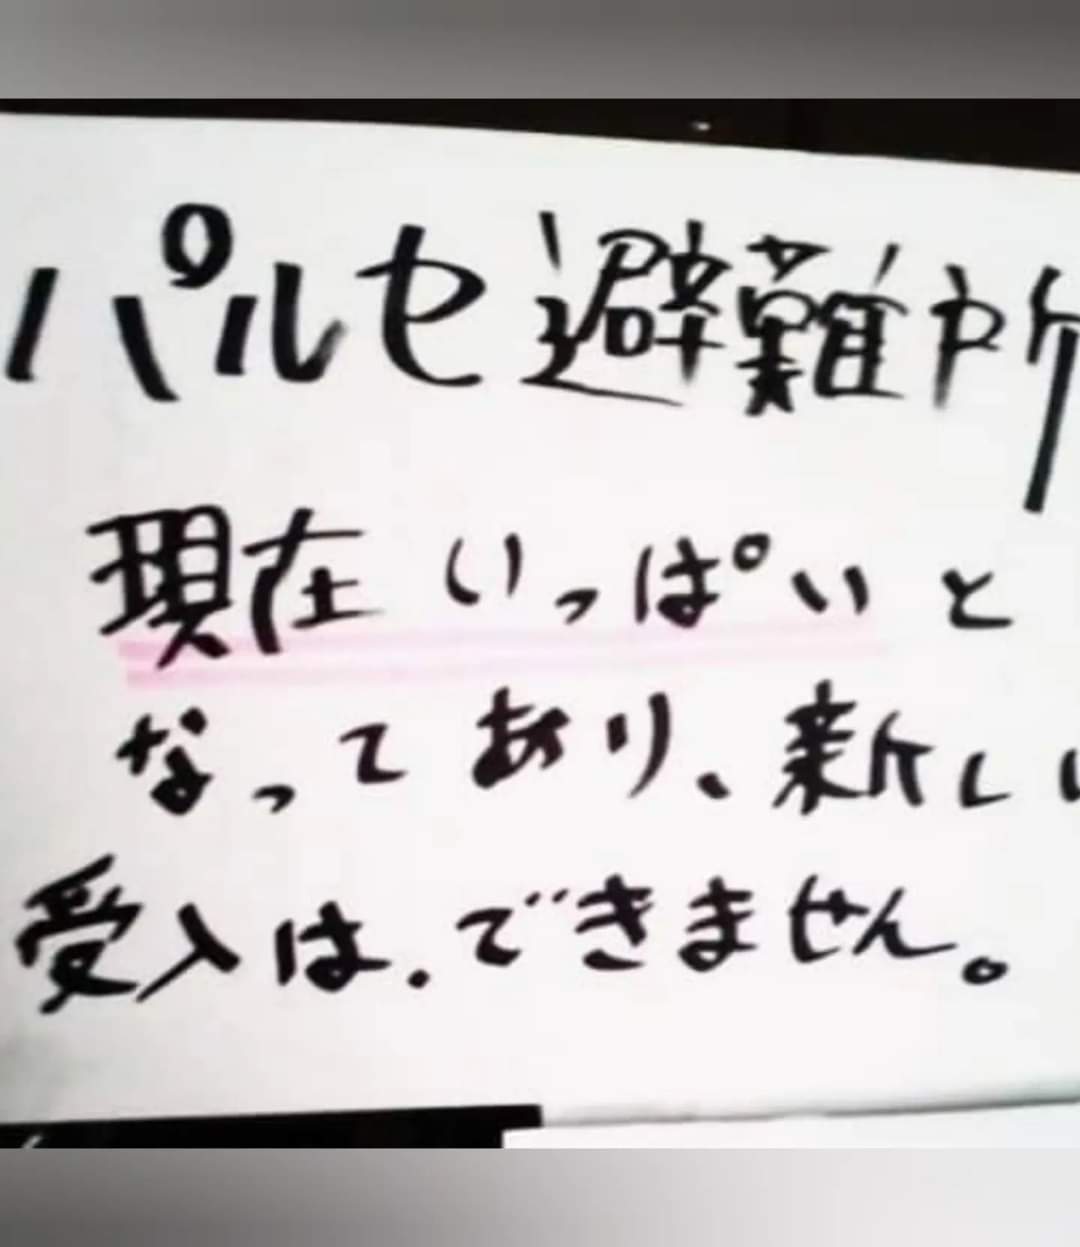 パルセ避難所
現在いっぱいと
なっており、新しい
受入は、できません。